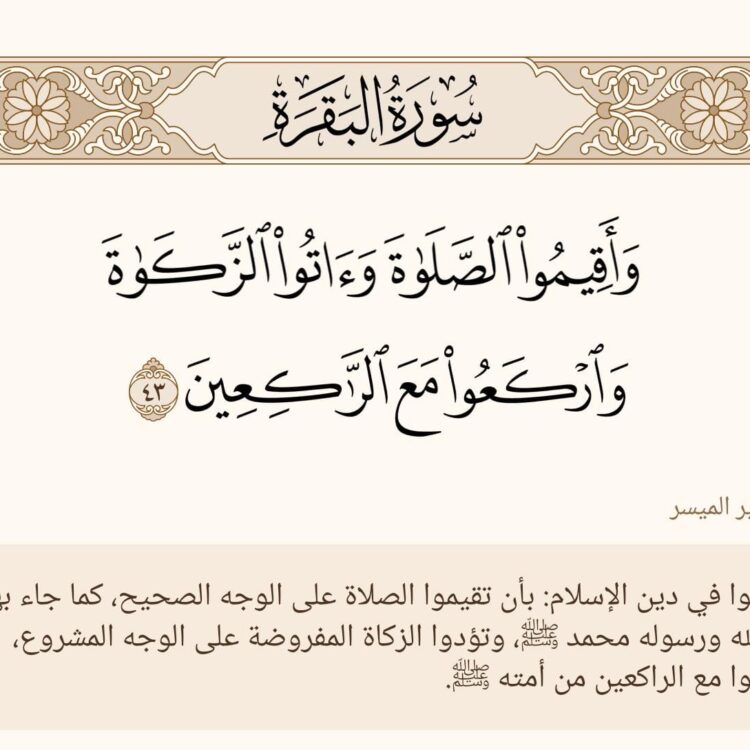 سُورَةُ البَقَرَةِ
وَأَقِيمُوا۟ ٱلصَّلَوٰةَ وَءَاتُوا۟ ٱلزَّكَوٰةَ
وَٱرْكَعُوا۟ مَعَ ٱلرَّٰكِعِينَ ٤٣
الميسر
في دين الإسلام: بأن تقيموا الصلاة على الوجه الصحيح، كما جاء
ورسوله محمد ﷺ، وتؤدوا الزكاة المفروضة على الوجه المشروع،
مع الراكعين من أمته ﷺ.